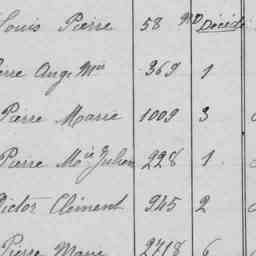 Louis Pierre 58 MD Décédé
Pierre Ange Mie 369 1
Pierre Marie 1009 3
Pierre Mie Julien 228 1
Victor Clément 945 2
Pierre Marie 2718 6